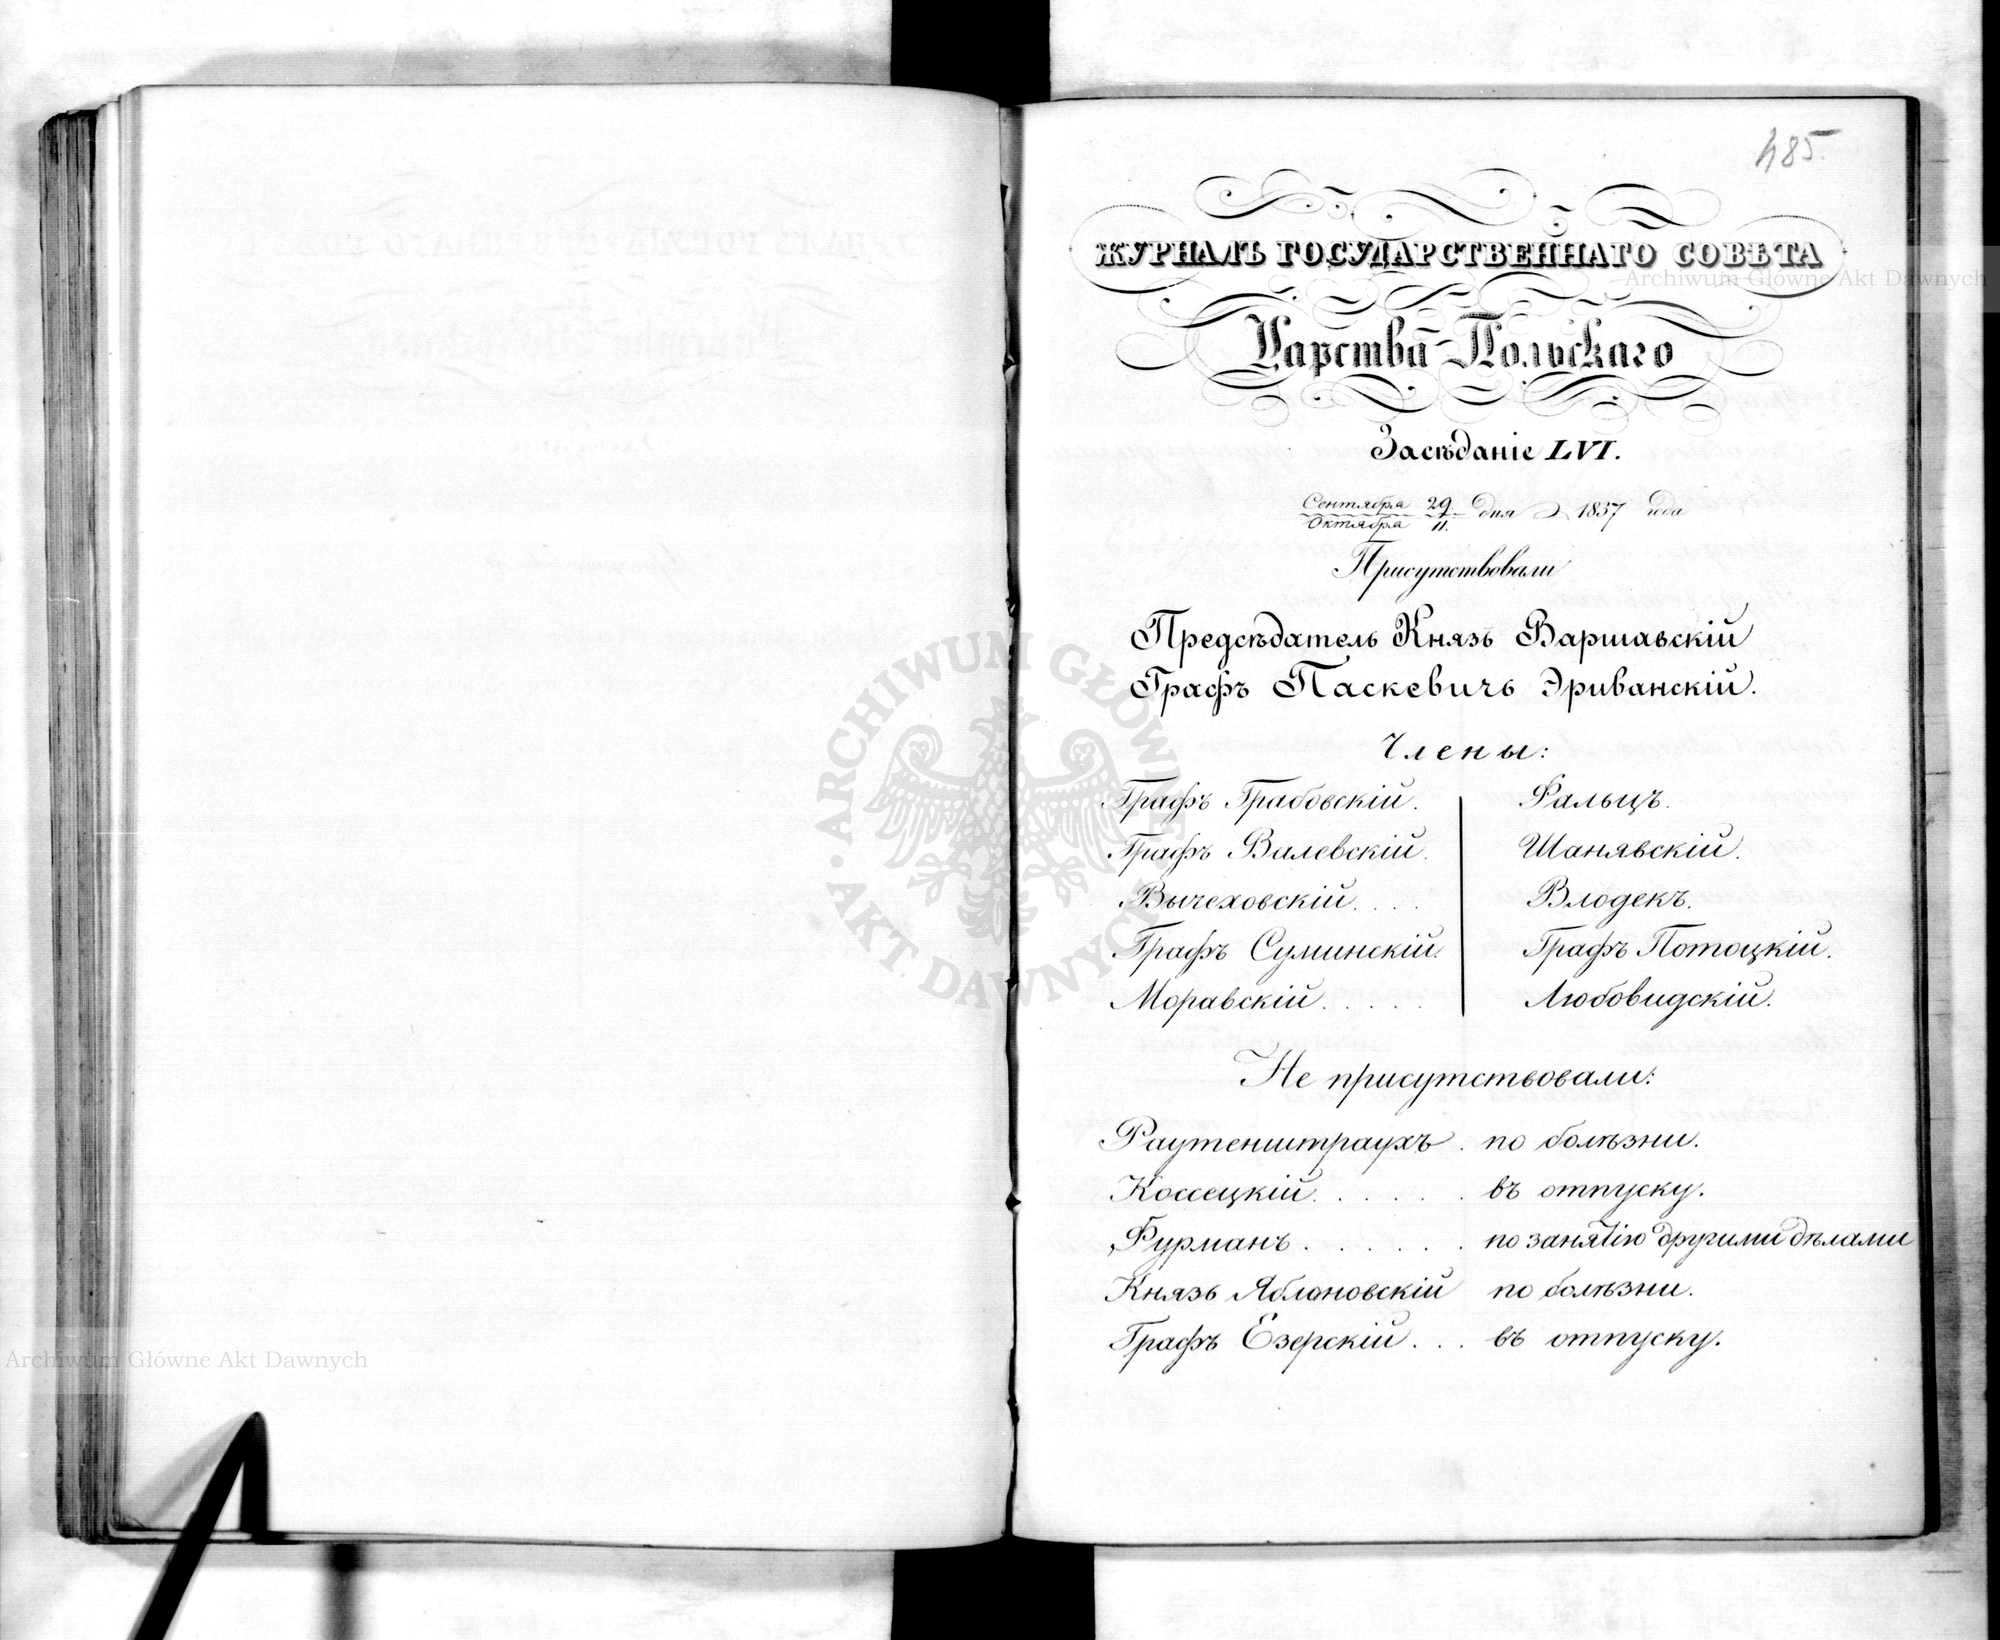 485.
ЖУРНАЛЪ ГОСУДАРСТВЕННАГО СОВѢТА
Царства Польскаго
Засѣданіе LVI.
Сентября 29 дня 1837 года
Октября 11.
Присутствовали
Предсѣдатель Князь Варшавскій
Графъ Паскевичъ Эриванскій.
Члены:
Графъ Грабовскій. Фальцъ.
Графъ Валевскій. Шанявскій.
Вычеховскій. . . . Влодекъ.
Графъ Суминскій. Графъ Потоцкій.
Моравскій . . . . . Любовидскій.
Не присутствовали:
Раутенштраухъ . по болѣзни.
Коссецкій . . . . . . въ отпуску.
Фурманъ . . . . . . по занятію другими дѣлами
Князь Яблоновскій по болѣзни.
Графъ Езерскій . . . въ отпуску.
Archiwum Główne Akt Dawnych
ARCHIWUM GŁÓWNE AKT DAWNYCH
Archiwum Główne Akt Dawnych